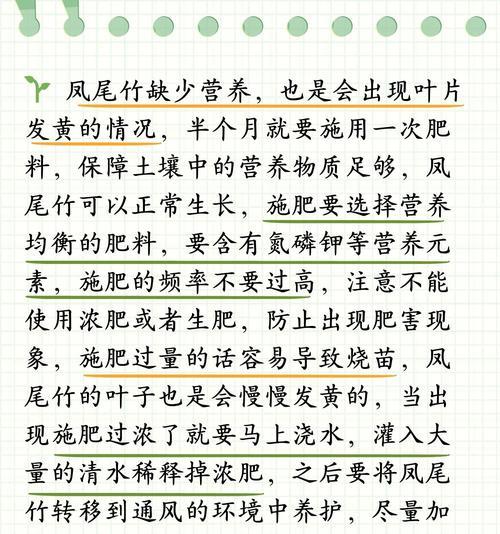 凤尾竹缺少营养，也是会出现叶片
发黄的情况，半个月就要施用一次肥
料，保障土壤中的营养物质足够，凤
尾竹可以正常生长，施肥要选择营养
均衡的肥料，要含有氮磷钾等营养元
素，施肥的频率不要过高，注意不能
使用浓肥或者生肥，防止出现肥害现
象，施肥过量的话容易导致烧苗，凤
尾竹的叶子也是会慢慢发黄的，当出
现施肥过浓了就要马上浇水，灌入大
量的清水稀释掉浓肥，之后要将凤尾
竹转移到通风的环境中养护，尽量加